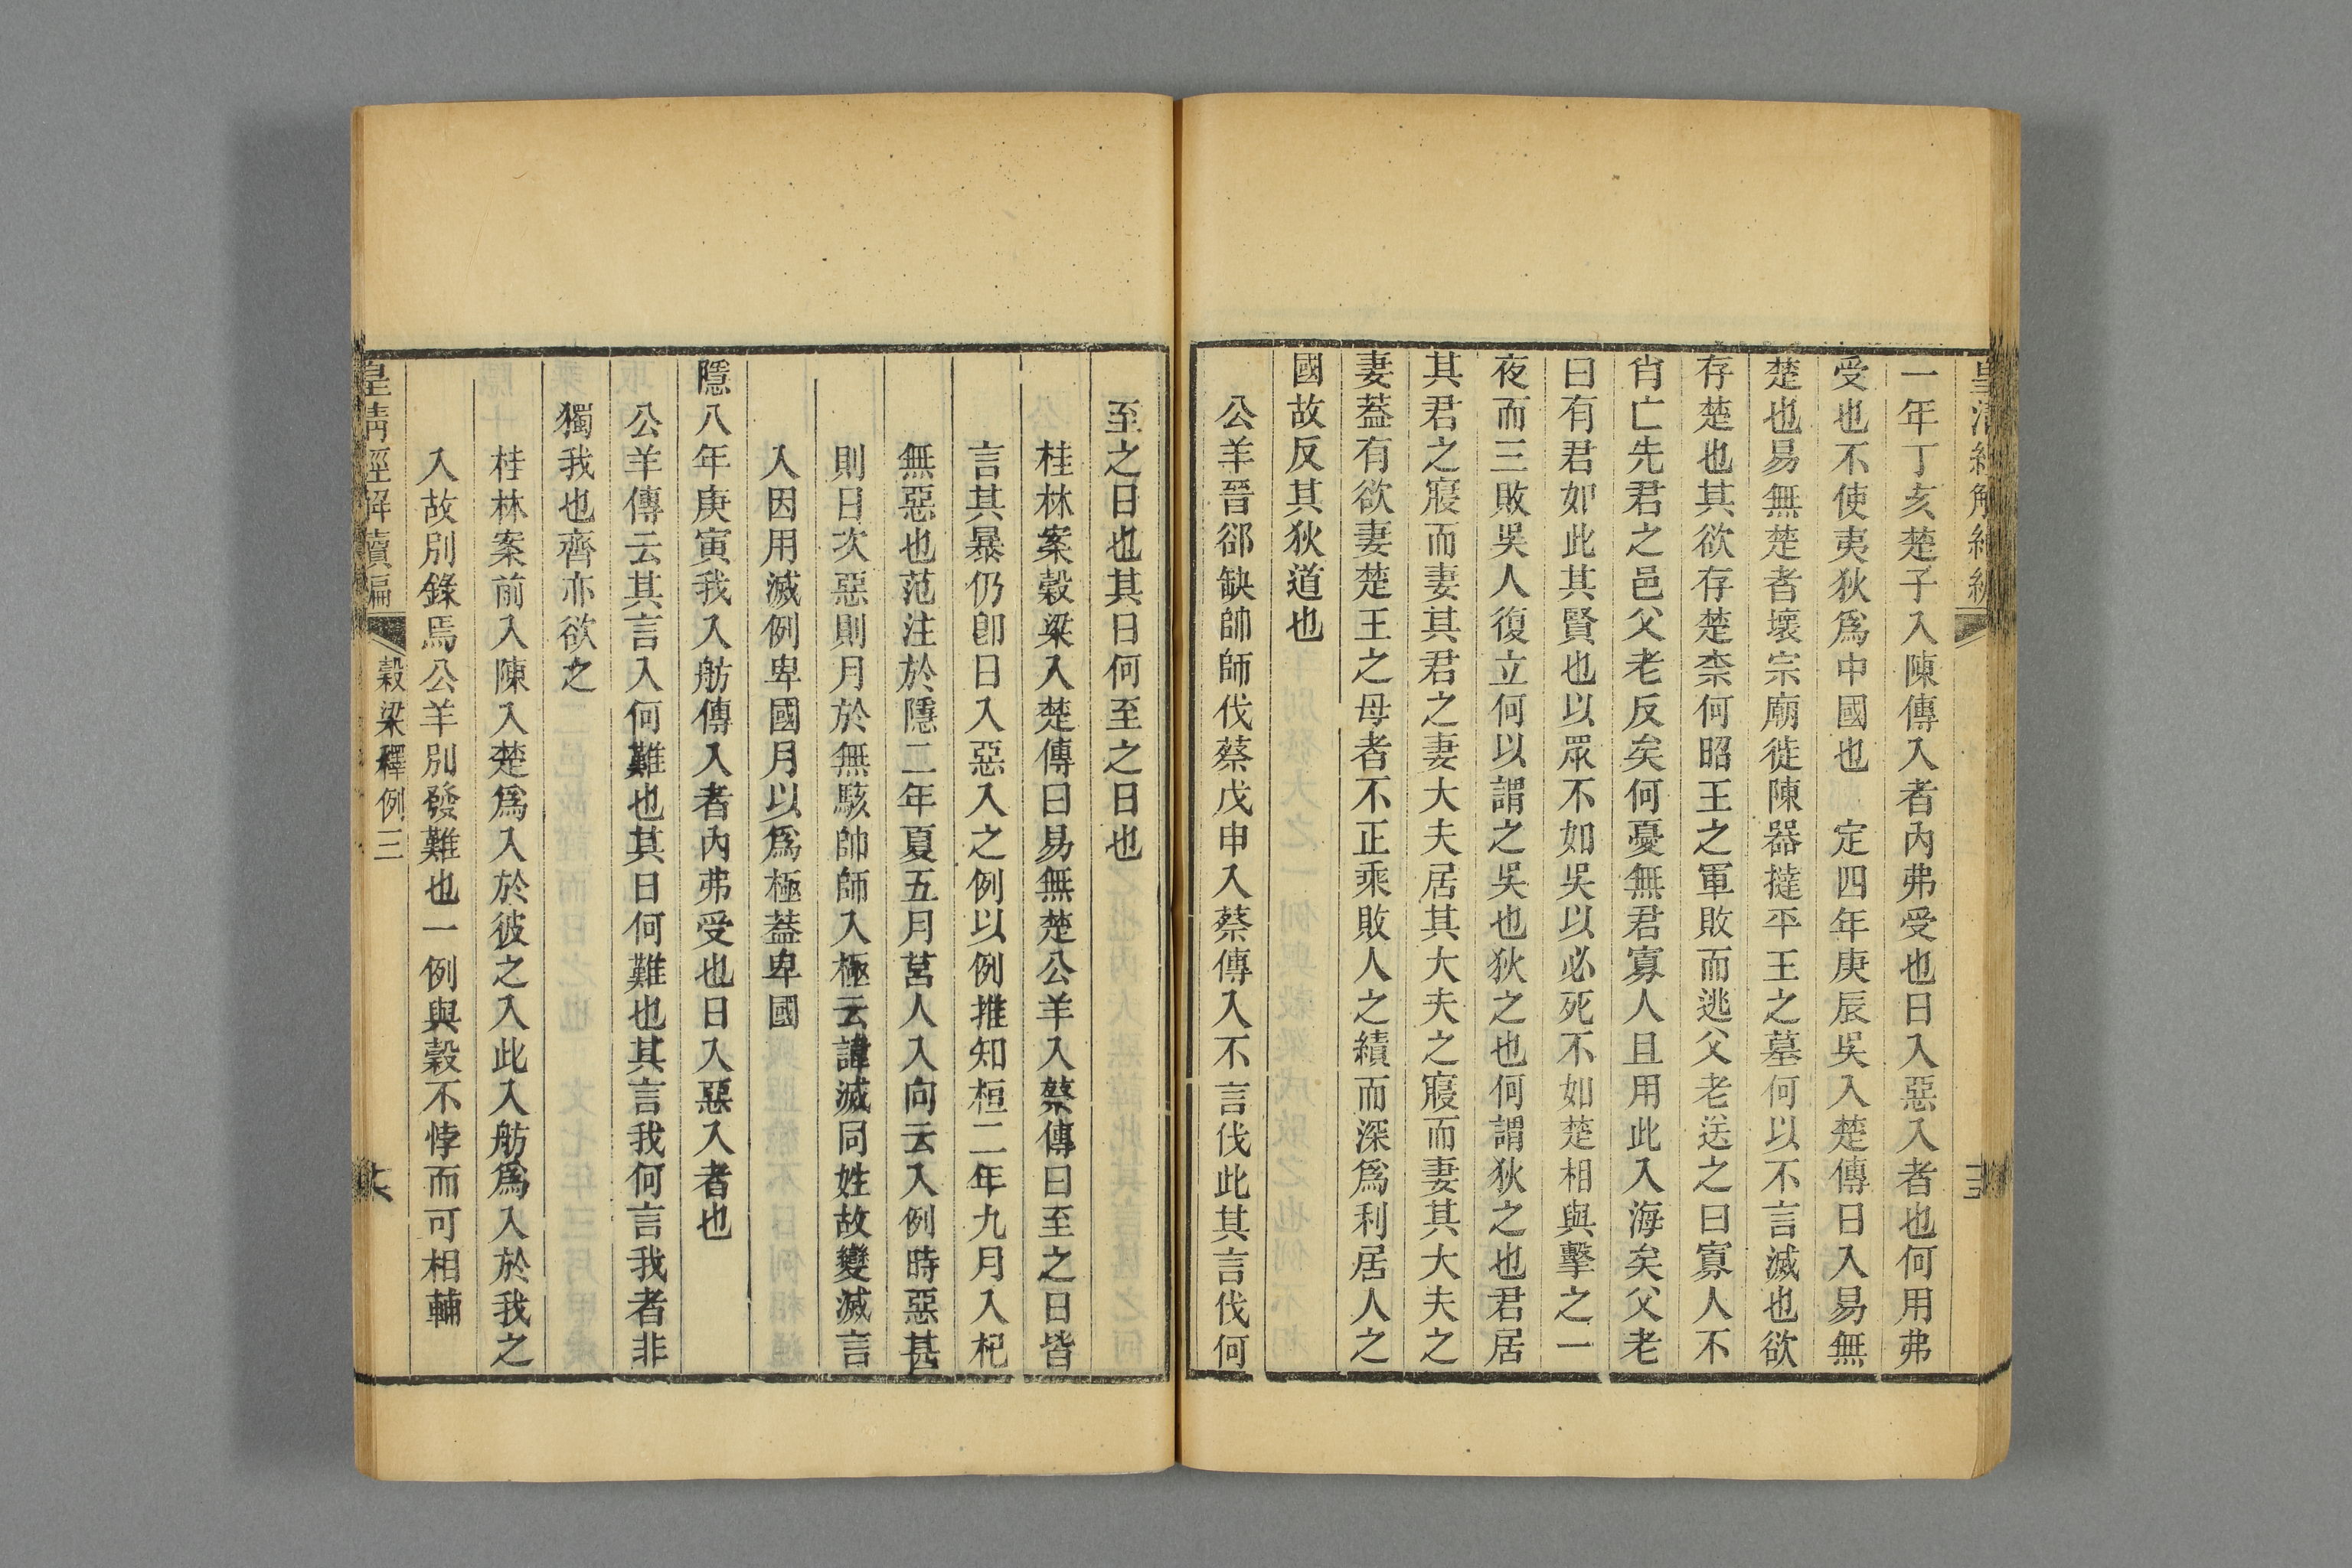 一年丁亥楚子入陳傳入者內弗受也日入惡入者也何用弗
受也不使夷狄爲中國也　定四年庚辰吳入楚傳日入易無
楚也易無楚者壞宗廟徙陳器撻平王之墓何以不言滅也欲
存楚也其欲存楚柰何昭王之軍敗而逃父老送之曰寡人不
肖亡先君之邑父老反矣何憂無君寡人且用此入海矣父老
曰有君如此其賢也以眾不如吳以必死不如楚相與擊之一
夜而三敗吳人復立何以謂之吳也狄之也何謂狄之也君居
其君之寢而妻其君之妻大夫居其大夫之寢而妻其大夫之
妻蓋有欲妻楚王之母者不正乘敗人之績而深爲利居人之
國故反其狄道也
公羊晉郤缺帥師伐蔡戊申入蔡傳入不言伐此其言伐何
至之日也其日何至之日也
桂林案穀梁入楚傳曰易無楚公羊入蔡傳曰至之日皆
言其暴仍卽日入惡入之例以例推知桓二年九月入杞
無惡也范注於隱二年夏五月莒人入向云入例時惡甚
則日次惡則月於無駭帥師入極云諱滅同姓故變滅言
入因用滅例卑國月以爲極蓋卑國
隱八年庚寅我入舫傳入者內弗受也日入惡入者也
公羊傳云其言入何難也其日何難也其言我何言我者非
獨我也齊亦欲之
桂林案前入陳入楚爲入於彼之入此入舫爲入於我之
入故別錄焉公羊別發難也一例與穀不悖而可相輔
皇淸經解續編
穀梁釋例三